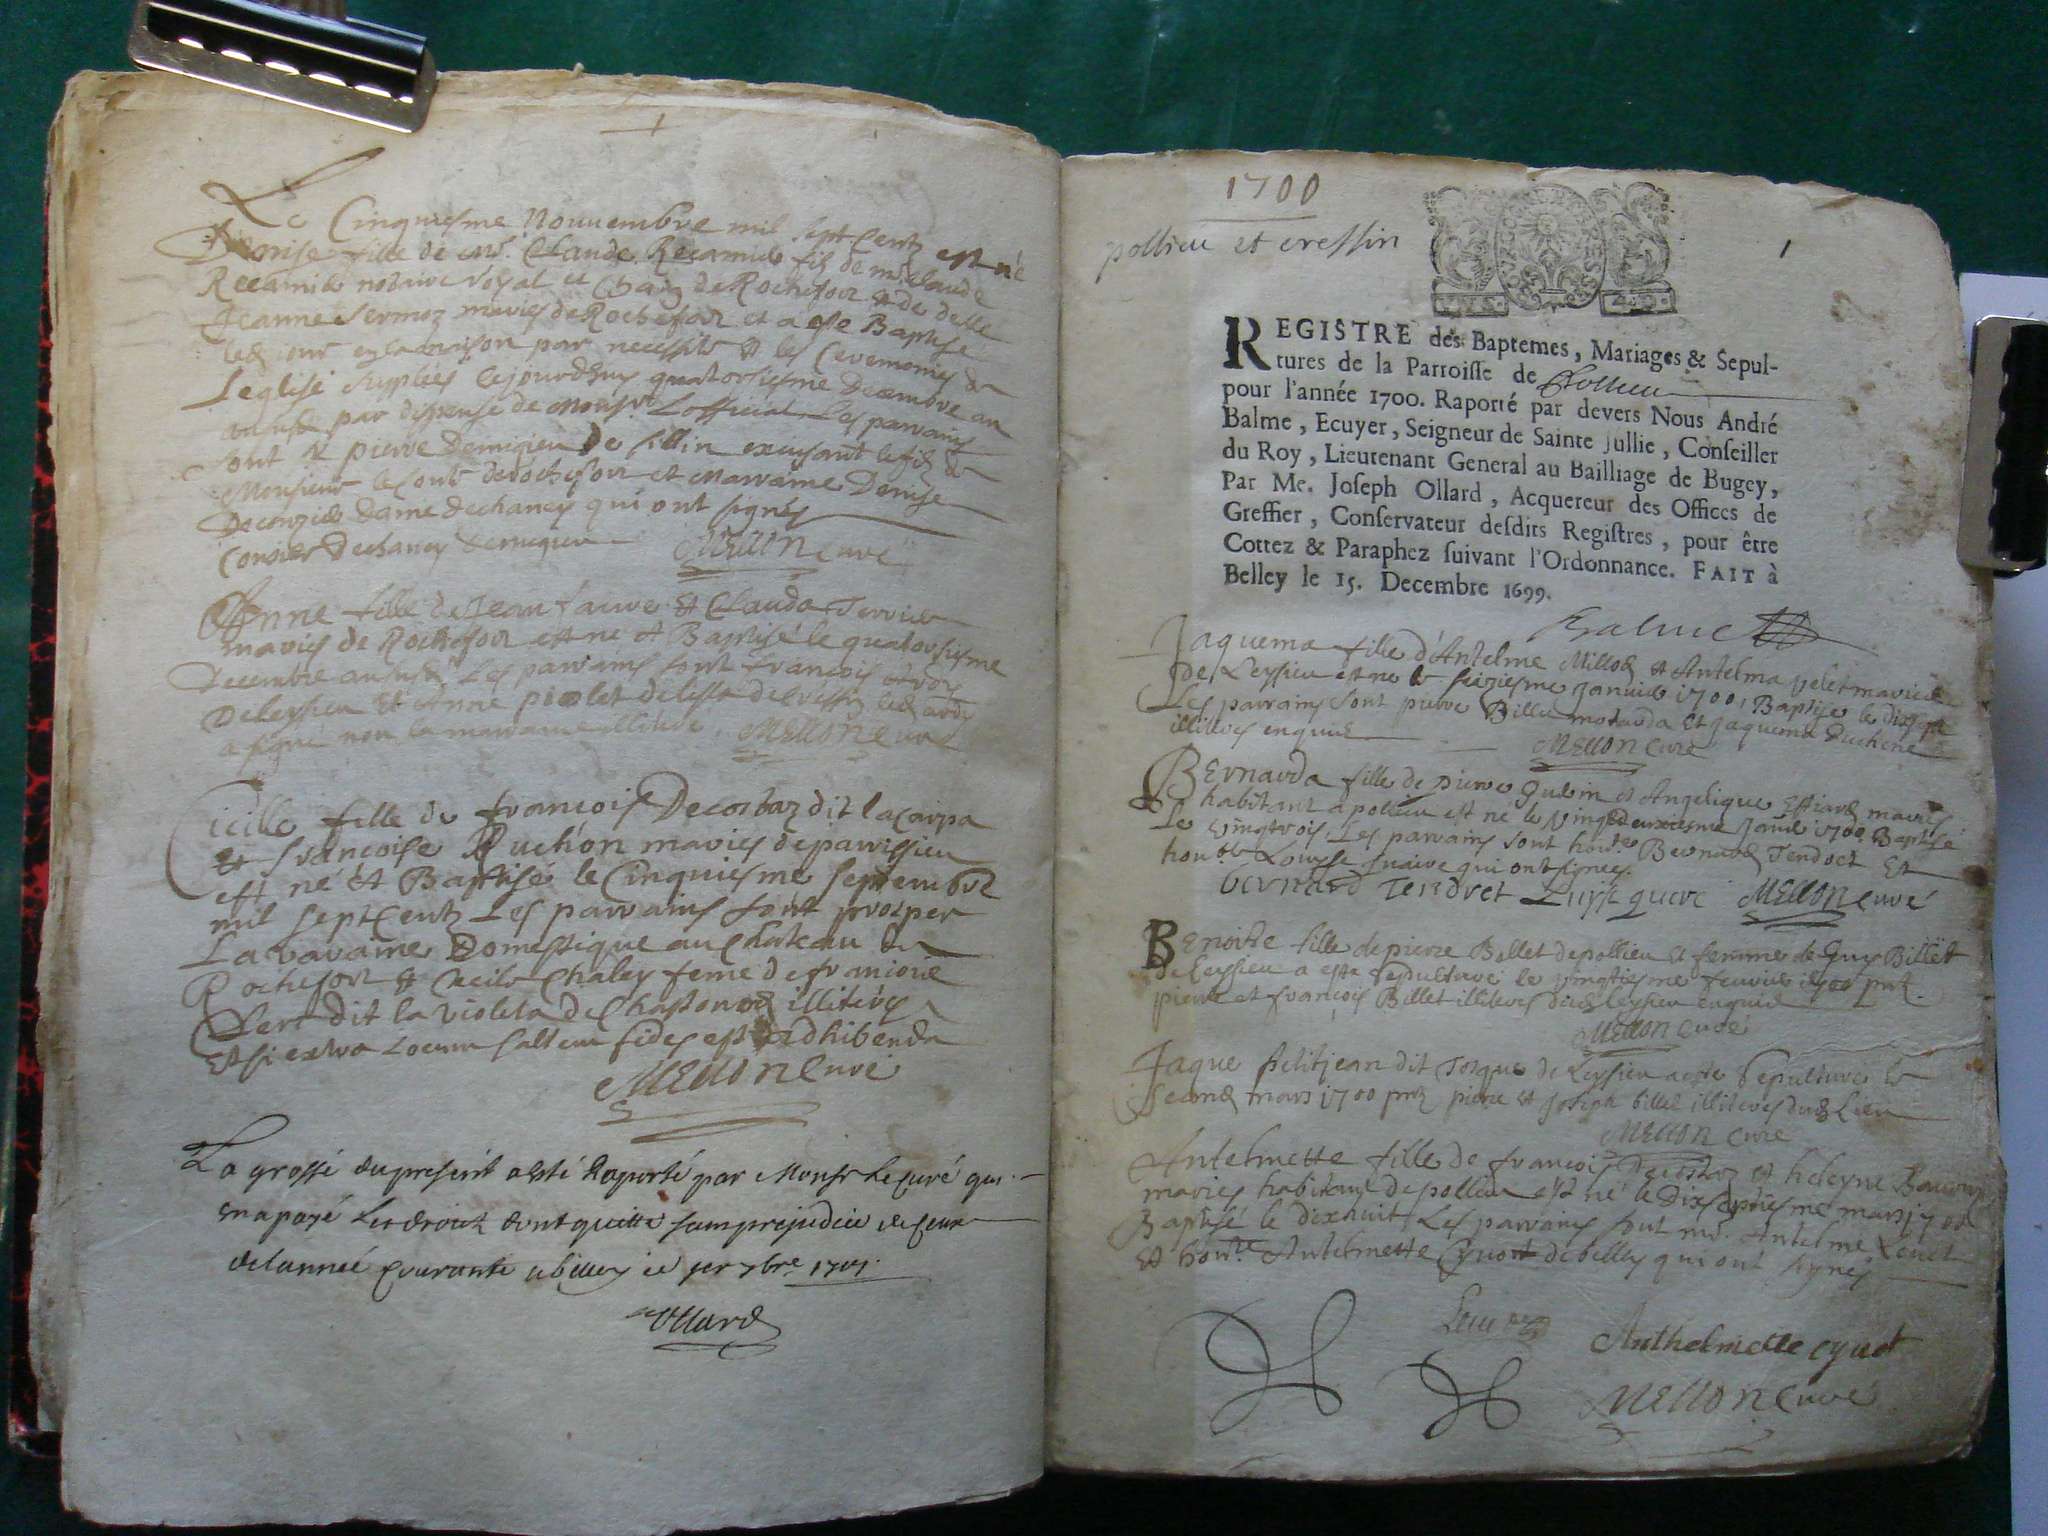 Le Cinquiesme Nouuembre mil sept Centz est né
Denise fille de Mr. Claude Recamier fils de mr Claude
Recamier notaire Royal et de Rochefort et de delle
Jeanne Sermoz mariés de Rochefort et a este Baptise
led jour en la maison par necessité et les Ceremonies de
Leglise supplées cejourdhuy quatorsiesme Decembre an
susd par dispense de Monsr Lofficial Les parrains
sont Sr pierre Demigieu de fillin excusant le fils de
Monsieur le Conte de rochefort et marraine Denise
Deconzié dame dechaney qui ont signés
Conzié Dechaney Demigieu MEllON Curé
Anne fille de Jean faure et Clauda Terrier
mariés de Rochefort est né et Baptisé le quatorsiesme
Decembre an susd Les parrains sont françois
De leyssieu Et Anne piolet de de Cressin led
a signé non la marraine illiterée. MEllON Curé
Cicille fille de françois Decostaz dit la Carpa
et francoise Ruchon mariés de parrissieu
est né et Baptisé le Cinquiesme septembre
mil sept Centz Les parrains sont prosper
La varaine Domestique au Chateau de
Rochefort et Cecile Chaley feme de francois
Clerc dit la violeta de Chastonod illiterés
Et si extra Locum saltem fides est adhibenda
MEllON Curé
La grosse du present a esté Raporté par Monsr Le Curé qui
en a payé Les droicts dont quitte sans prejudice de ceux
de lannée Courante a belley ce 1er 7bre 1701.
Ollard
1700
pollieu et cressin
1
REGISTRE des Baptemes, Mariages & Sepul-
tures de la Parroisse de Pollieu
pour l'année 1700. Raporté par devers Nous André
Balme, Ecuyer, Seigneur de Sainte Jullie, Conseiller
du Roy, Lieutenant General au Bailliage de Bugey,
Par Me. Joseph Ollard, Acquereur des Offices de
Greffier, Conservateur desdits Registres, pour être
Cottez & Paraphez suivant l'Ordonnance. FAIT à
Belley le 15. Decembre 1699.
Balme
Jaquema fille d'Antelme Millod et Antelma velet mariés
de Leyssieu est né le seiziesme Janvier 1700, Baptise le dixsept
Les parrains sont pierre Billiet et Jaquema Duchene
illiterés enquis MEllON Curé
BErnarda fille de pierre Guerin et Angelique Effiard mariés
habitant a pollieu est né le vingtdeuxiesme Janvr 1700 Baptise
Le vingtrois. Les parrains sont honble Bernard Tendret Et
honble Louyse quaire qui ont signés.
bernard Tendret Luyse quere MEllON Curé
BEnoitte fille de pierre Bollet de pollieu et femme de Guy Billiet
de leyssieu a este sepulturé le vingtiesme feuvrier 1700 pnt
pierre et francois Billet illiterés dud leyssieu enquis
MEllON Curé
Jaque petitjean dit Tosque de Leyssieu a este sepulturé le
second mars 1700 pnt piere et Joseph billet illiterés dud Lieu
MEllON Curé
Antelmette fille de françois Decostaz et heleyne
mariés habitans de pollieu est né le Dixseptiesme mars 1700
Baptisé le dixhuit. Les parrains sont mr. Antelme
Et honle Antelmette Cyuot de belley qui ont signés
Anthelmette cyuot
MEllON Curé